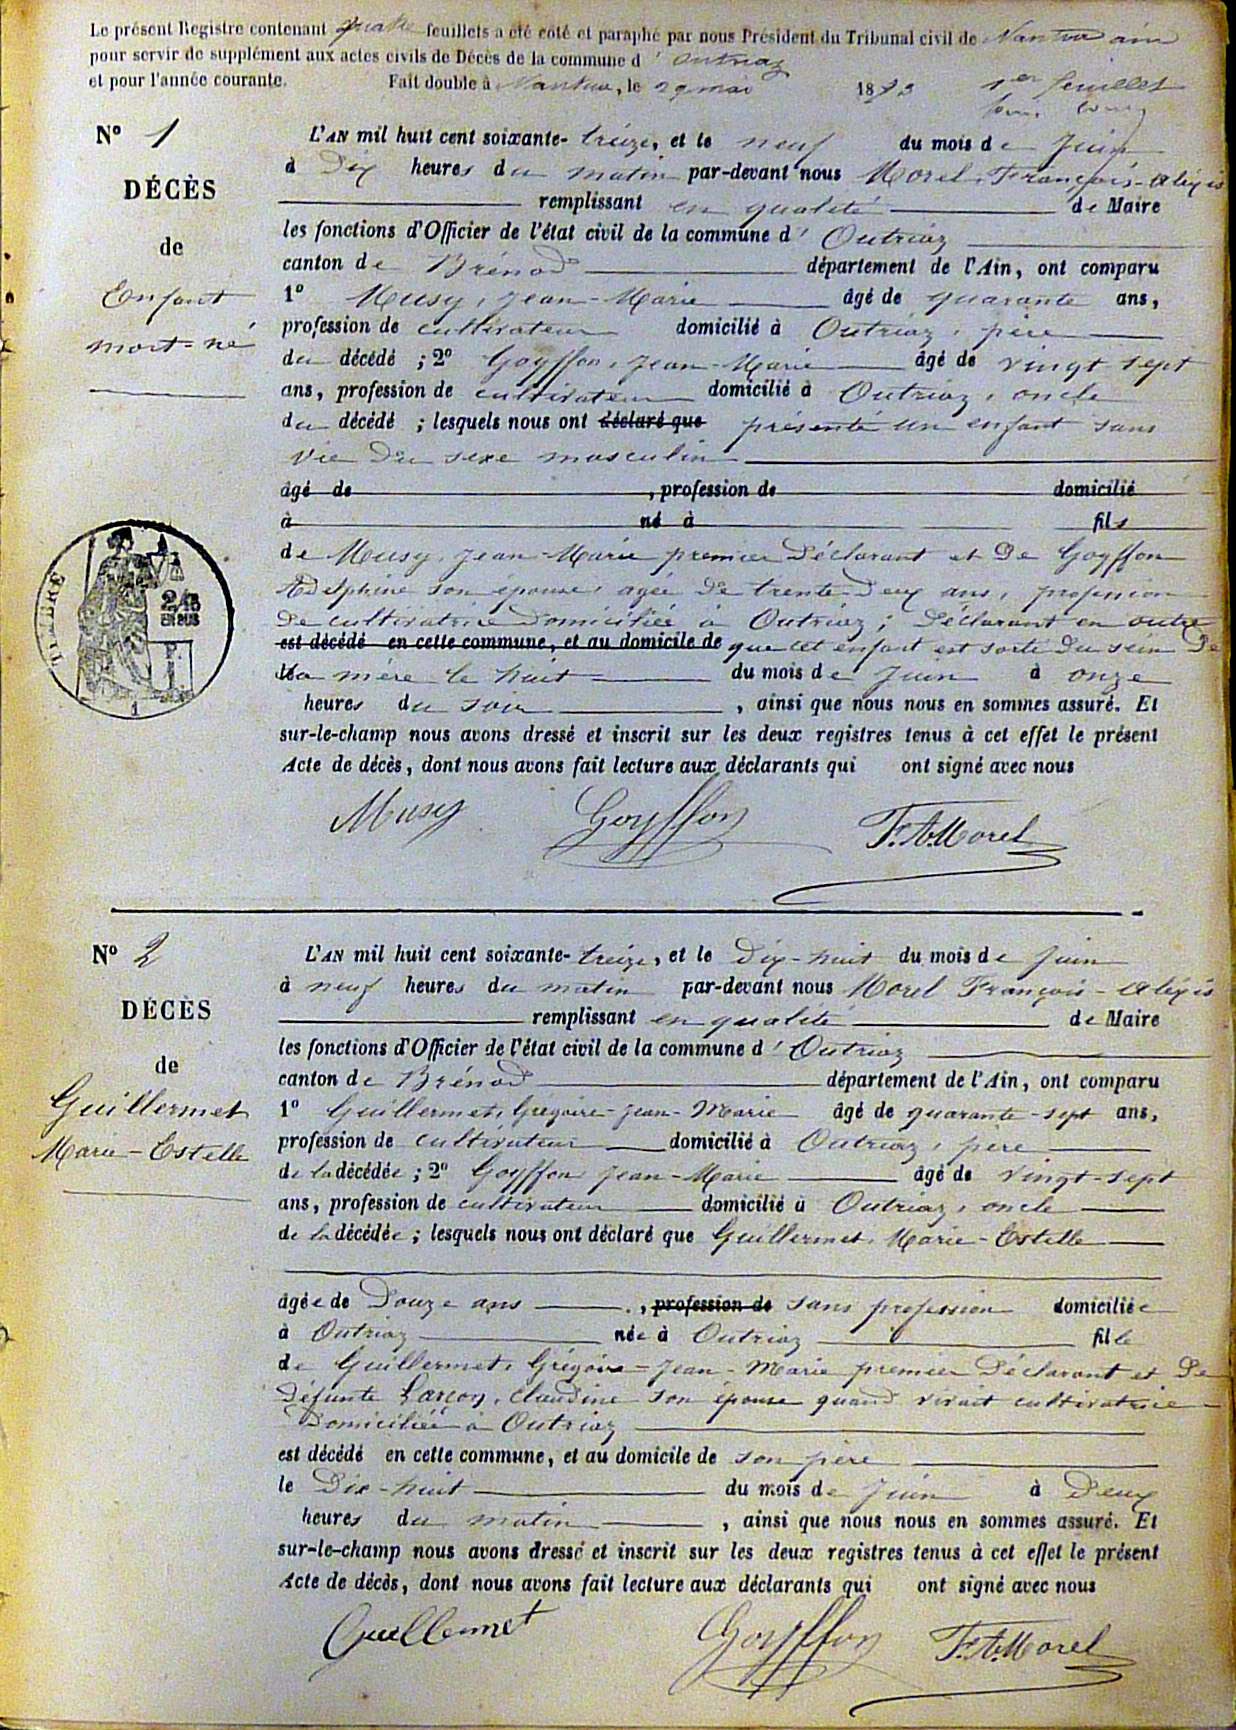 Le présent Registre contenant quatre feuillets a été coté et paraphé par nous Président du Tribunal civil de Nantua ain
pour servir de supplément aux actes civils de Décès de la commune d' Outriaz
et pour l'année courante. Fait double à Nantua, le 29 mai 1873 1er feuillet
N° 1
DÉCÈS
de
Enfant
mort-né
L'AN mil huit cent soixante-treize, et le neuf du mois de Juin
à Dix heures du matin par-devant nous Morel, François-Alexis
remplissant en qualité de Maire
les fonctions d'Officier de l'état civil de la commune d' Outriaz
canton de Brénod département de l'Ain, ont comparu
1° Musy, Jean-Marie âgé de quarante ans,
profession de cultivateur domicilié à Outriaz, père
du décédé ; 2° Goyffon, Jean-Marie âgé de vingt-sept
ans, profession de cultivateur domicilié à Outriaz, oncle
du décédé ; lesquels nous ont déclaré que présenté un enfant sans
vie du sexe masculin
âgé de , profession de domicilié
à né à fils
de Musy, Jean-Marie premier Déclarant et De Goyffon
Adelphine son épouse, agée de trente-Deux ans, profession
De cultivatrice Domiciliée à Outriaz ; Déclarant en outre
est décédé en cette commune, et au domicile de que cet enfant est sorti Du sein De
sa mère le huit du mois de Juin à onze
heures du soir , ainsi que nous nous en sommes assuré. Et
sur-le-champ nous avons dressé et inscrit sur les deux registres tenus à cet effet le présent
Acte de décès, dont nous avons fait lecture aux déclarants qui ont signé avec nous
Musy Goyffon F. A. Morel
TIMBRE
2/10
EN SUS
1
N° 2
DÉCÈS
de
Guillermet
Marie-Estelle
L'AN mil huit cent soixante-treize, et le Dix-huit du mois de Juin
à neuf heures du matin par-devant nous Morel François-Alexis
remplissant en qualité de Maire
les fonctions d'Officier de l'état civil de la commune d' Outriaz
canton de Brénod département de l'Ain, ont comparu
1° Guillermet, Grégoire-Jean-Marie âgé de quarante-sept ans,
profession de cultivateur domicilié à Outriaz, père
de la décédée ; 2° Goyffon Jean-Marie âgé de vingt-sept
ans, profession de cultivateur domicilié à Outriaz, oncle
de la décédée ; lesquels nous ont déclaré que Guillermet, Marie-Estelle
âgée de Douze ans , profession de sans profession domiciliée
à Outriaz née à Outriaz fille
de Guillermet, Grégoire-Jean-Marie premier Déclarant et De
Défunte Larçon, Claudine son épouse quand vivait cultivatrice
Domiciliée à Outriaz
est décédé en cette commune, et au domicile de son père
le Dix-huit du mois de Juin à Deux
heures du matin , ainsi que nous nous en sommes assuré. Et
sur-le-champ nous avons dressé et inscrit sur les deux registres tenus à cet effet le présent
Acte de décès, dont nous avons fait lecture aux déclarants qui ont signé avec nous
Guillermet Goyffon F. A. Morel